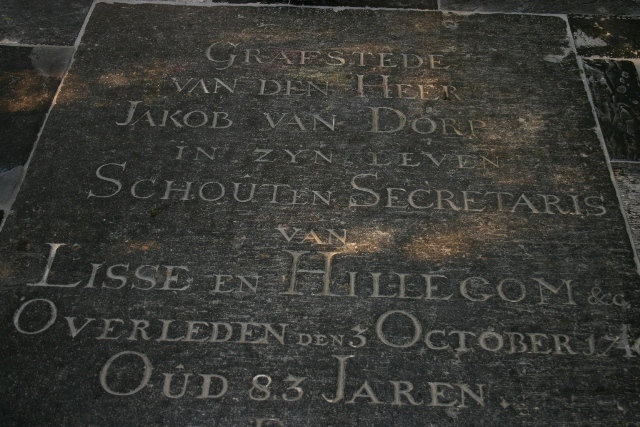 GRAFSTEDE
VAN DEN HEER
JAKOB VAN DORP
IN ZYN LEVEN
SCHOUT EN SECRETARIS
VAN
LISSE EN HILLEGOM &c.
OVERLEDEN DEN 3 OCTOBER
OUD 83 JAREN